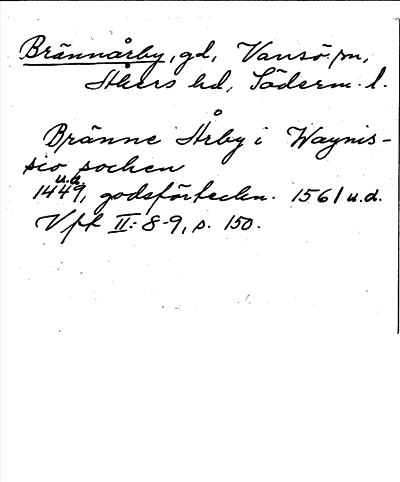 Brännårby, gd, Vansö sn,
Åkers hd, Söderm. l.
Bränne Årby i Waynis-
sio sochen
u.d.
1449, godsförteckn. 1561 u.d.
Vfk II:8-9, s. 150.